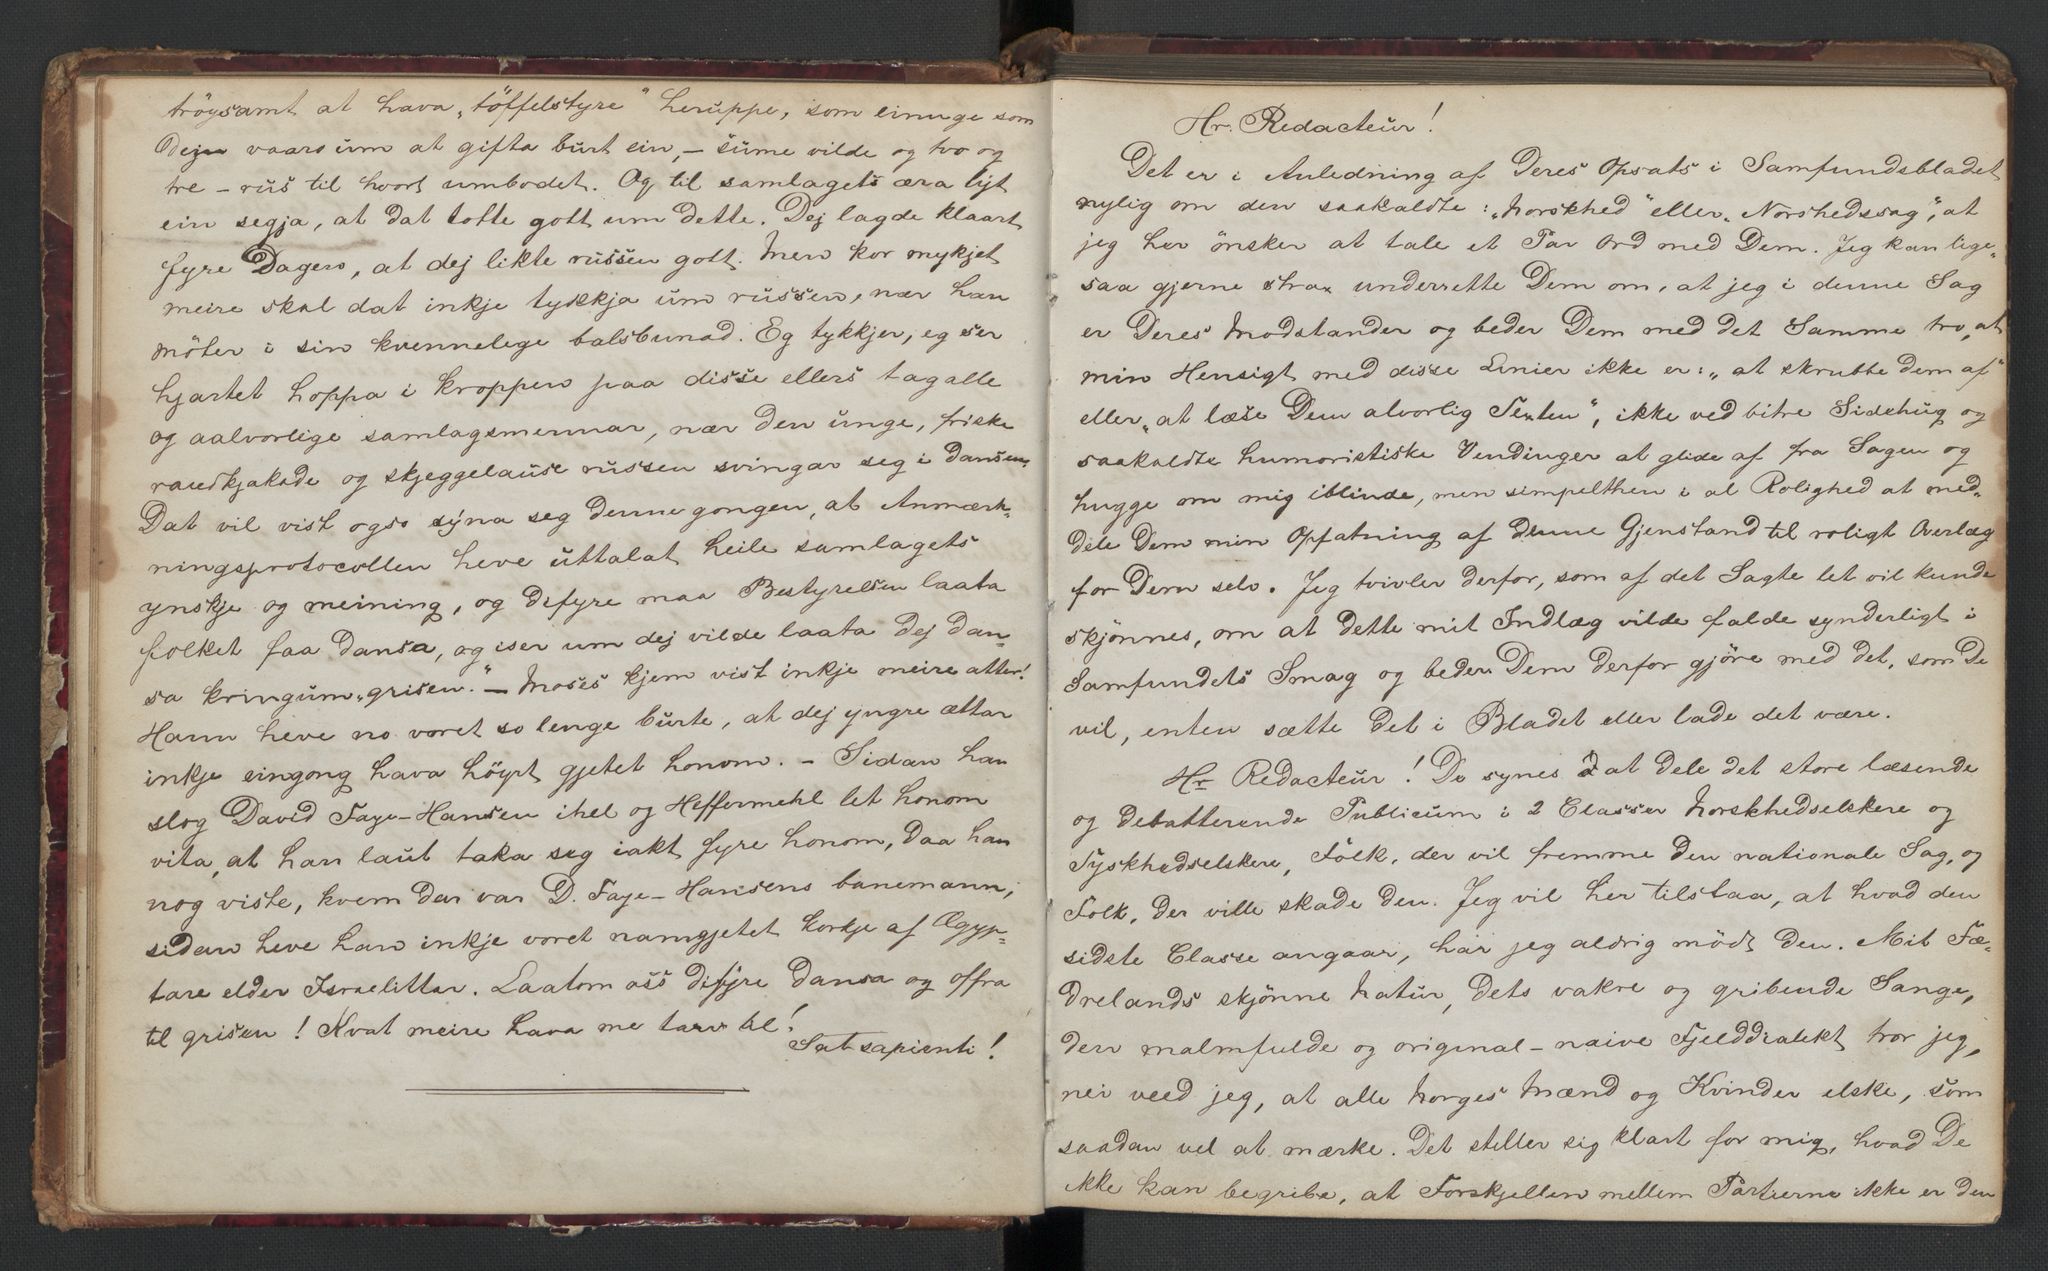 tröysamt at hava „töffelstyre“ heruppe, som einuge som
Dej vaaro um at gifta burt ein, – sume vilde og tvo og
tre – rus til hvort umbodet. Og til samlagets æra lyt
ein segja, at dat totte gott um dette. Dej lagde klaart
fyre Dagen, at dej likte russen gott. Men kor mykjet
meire skal dat inkje tykkja um russen, nær han
möter i sin kvennelege balsbunad. Eg tykkjer, eg ser
hjartet hoppa i kroppen paa disse ellers tagalle
og aalvorlige samlagsmennar, nær den unge, friske
raudkjakade og skjeggelause russen svingar seg i dansen.
Dat vil vist ogso syna seg denne gongen, at Anmærk-
ningsprotocollen heve uttalat heile samlagets
ynskje og meining, og difyre maa Bestyrelsen laata
folket faa dansa, og iser um dej vilde laata dej dan-
sa kringum „grisen.“ – Moses kjem vist inkje meire atter!
Hann heve no voret so lenge burte, at dej yngre ættar
inkje eingong hava höyrt gjetet honom. – Sidan han
slog David Faye-Hansen ihel og Heffermehl let honom
vita, at han laut taka seg iakt fyre honom, daa han
nog viste, kvem dar var D. Faye-Hansens banemann,
sidan heve han inkje voret namngjetet korkje af Ægyp-
tare elder Israelittar. Laatom oss difyre dansa og offra
til grisen! Kvat meire hava me tarv til!
Sat sapienti!
Hr. Redacteur!
Det er i Anledning af Deres Opsats i Samfundsbladet
nylig om den saakaldte: „Norskhed“ eller „Norskhedssag“, at
jeg her önsker at tale et Par Ord med Dem. Jeg kan lige-
saa gjerne strax underrette Dem om, at jeg i denne Sag
er Deres Modstander og beder Dem med det Samme tro, at
min Hensigt med disse Linier ikke er: „at skrubbe Dem af“
eller „at læse Dem alvorlig Texten“, ikke ved bitre Sidehug og
saakaldte humoristiske Vendinger at glide af fra Sagen og
hugge om mig iblinde, men simpelthen i al Rolighed at med-
dele Dem min Opfatning af denne Gjenstand til roligt Overlæg
for Dem selv. Jeg tvivler derfor, som af det Sagte let vil kunde
skjönnes, om at dette mit Indlæg vilde falde synderligt i
Samfundets Smag og beder Dem derfor gjöre med det, som De
vil, enten sætte det i Bladet eller lade det være.
Hr Redacteur! De synes at dele det store læsende
og debatterende Publicum i 2 Classer Norskhedselskere og
Tyskhedselskere, Folk, der vil fremme den nationale Sag, og
Folk, der ville skade den. Jeg vil her tilstaa, at hvad den
sidste Classe angaar, har jeg aldrig mödt den. Mit Fæ-
drelands skjönne Natur, dets vakre og gribende Sange,
den malmfulde og original-naive Fjelddialekt tror jeg,
nei veed jeg, at alle Norges Mænd og Kvinder elske, som
saadan vel at mærke. Det stiller sig klart for mig, hvad De
ikke kan begribe, at Forskjellen mellem Partierne ikke er den